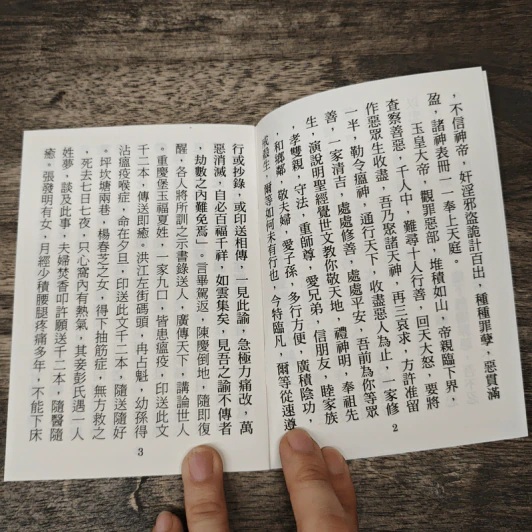 ，不信神帝，奸淫邪盜詭計百出，種種罪孽，惡貫滿
盈，諸神表冊一一奉上天庭。
玉皇大帝，觀罪惡部，堆積如山，帝親臨下界，
查察善惡，千人中，難尋十人行善，回天大怒，要將
作惡眾生收盡，吾乃聚諸天神，再三哀求，方許准留
一半，勒令瘟神，通行天下，收盡惡人為止，一家修
善，一家清吉，處處修善，處處平安，吾前為你等眾
生，演說明聖經覺世文教你敬天地，禮神明，奉祖先
，孝雙親，守法，重師尊，愛兄弟，信朋友，睦家族
，和鄉鄰，敬夫婦，愛子孫，多行方便，廣積陰功，
戒殺生，爾等如何未有行也，今特臨凡，爾等從速遵
2
行或抄錄，或印送相傳，一見此諭，急極力痛改，萬
惡消滅，自必百福千祥，如雲集矣，見吾之諭不傳者
，劫數之內難免焉」。言畢駕返，陳慶倒地，隨即復
醒，各人將所訓之示書錄送人，廣傳天下，講論世人
。重慶堡玉福夏姓，一家九口，皆患瘟疫，印送此文
千二本，傳送即癒。洪江左街碼頭，冉占魁，幼孫得
沾瘟疫喉症，命在夕旦，印送此文千二本，隨送隨好
。坪坎塘兩巷，楊春芝之女，得下抽筋症，無方救之
，死去七日七夜，只心窩內有熱氣，其妾彭氏遇一人
姓夢，談及此事，夫婦焚香叩許願送千二本，隨醫隨
癒。張發明有女，月經少積腰腿疼痛多年，不能下床
3